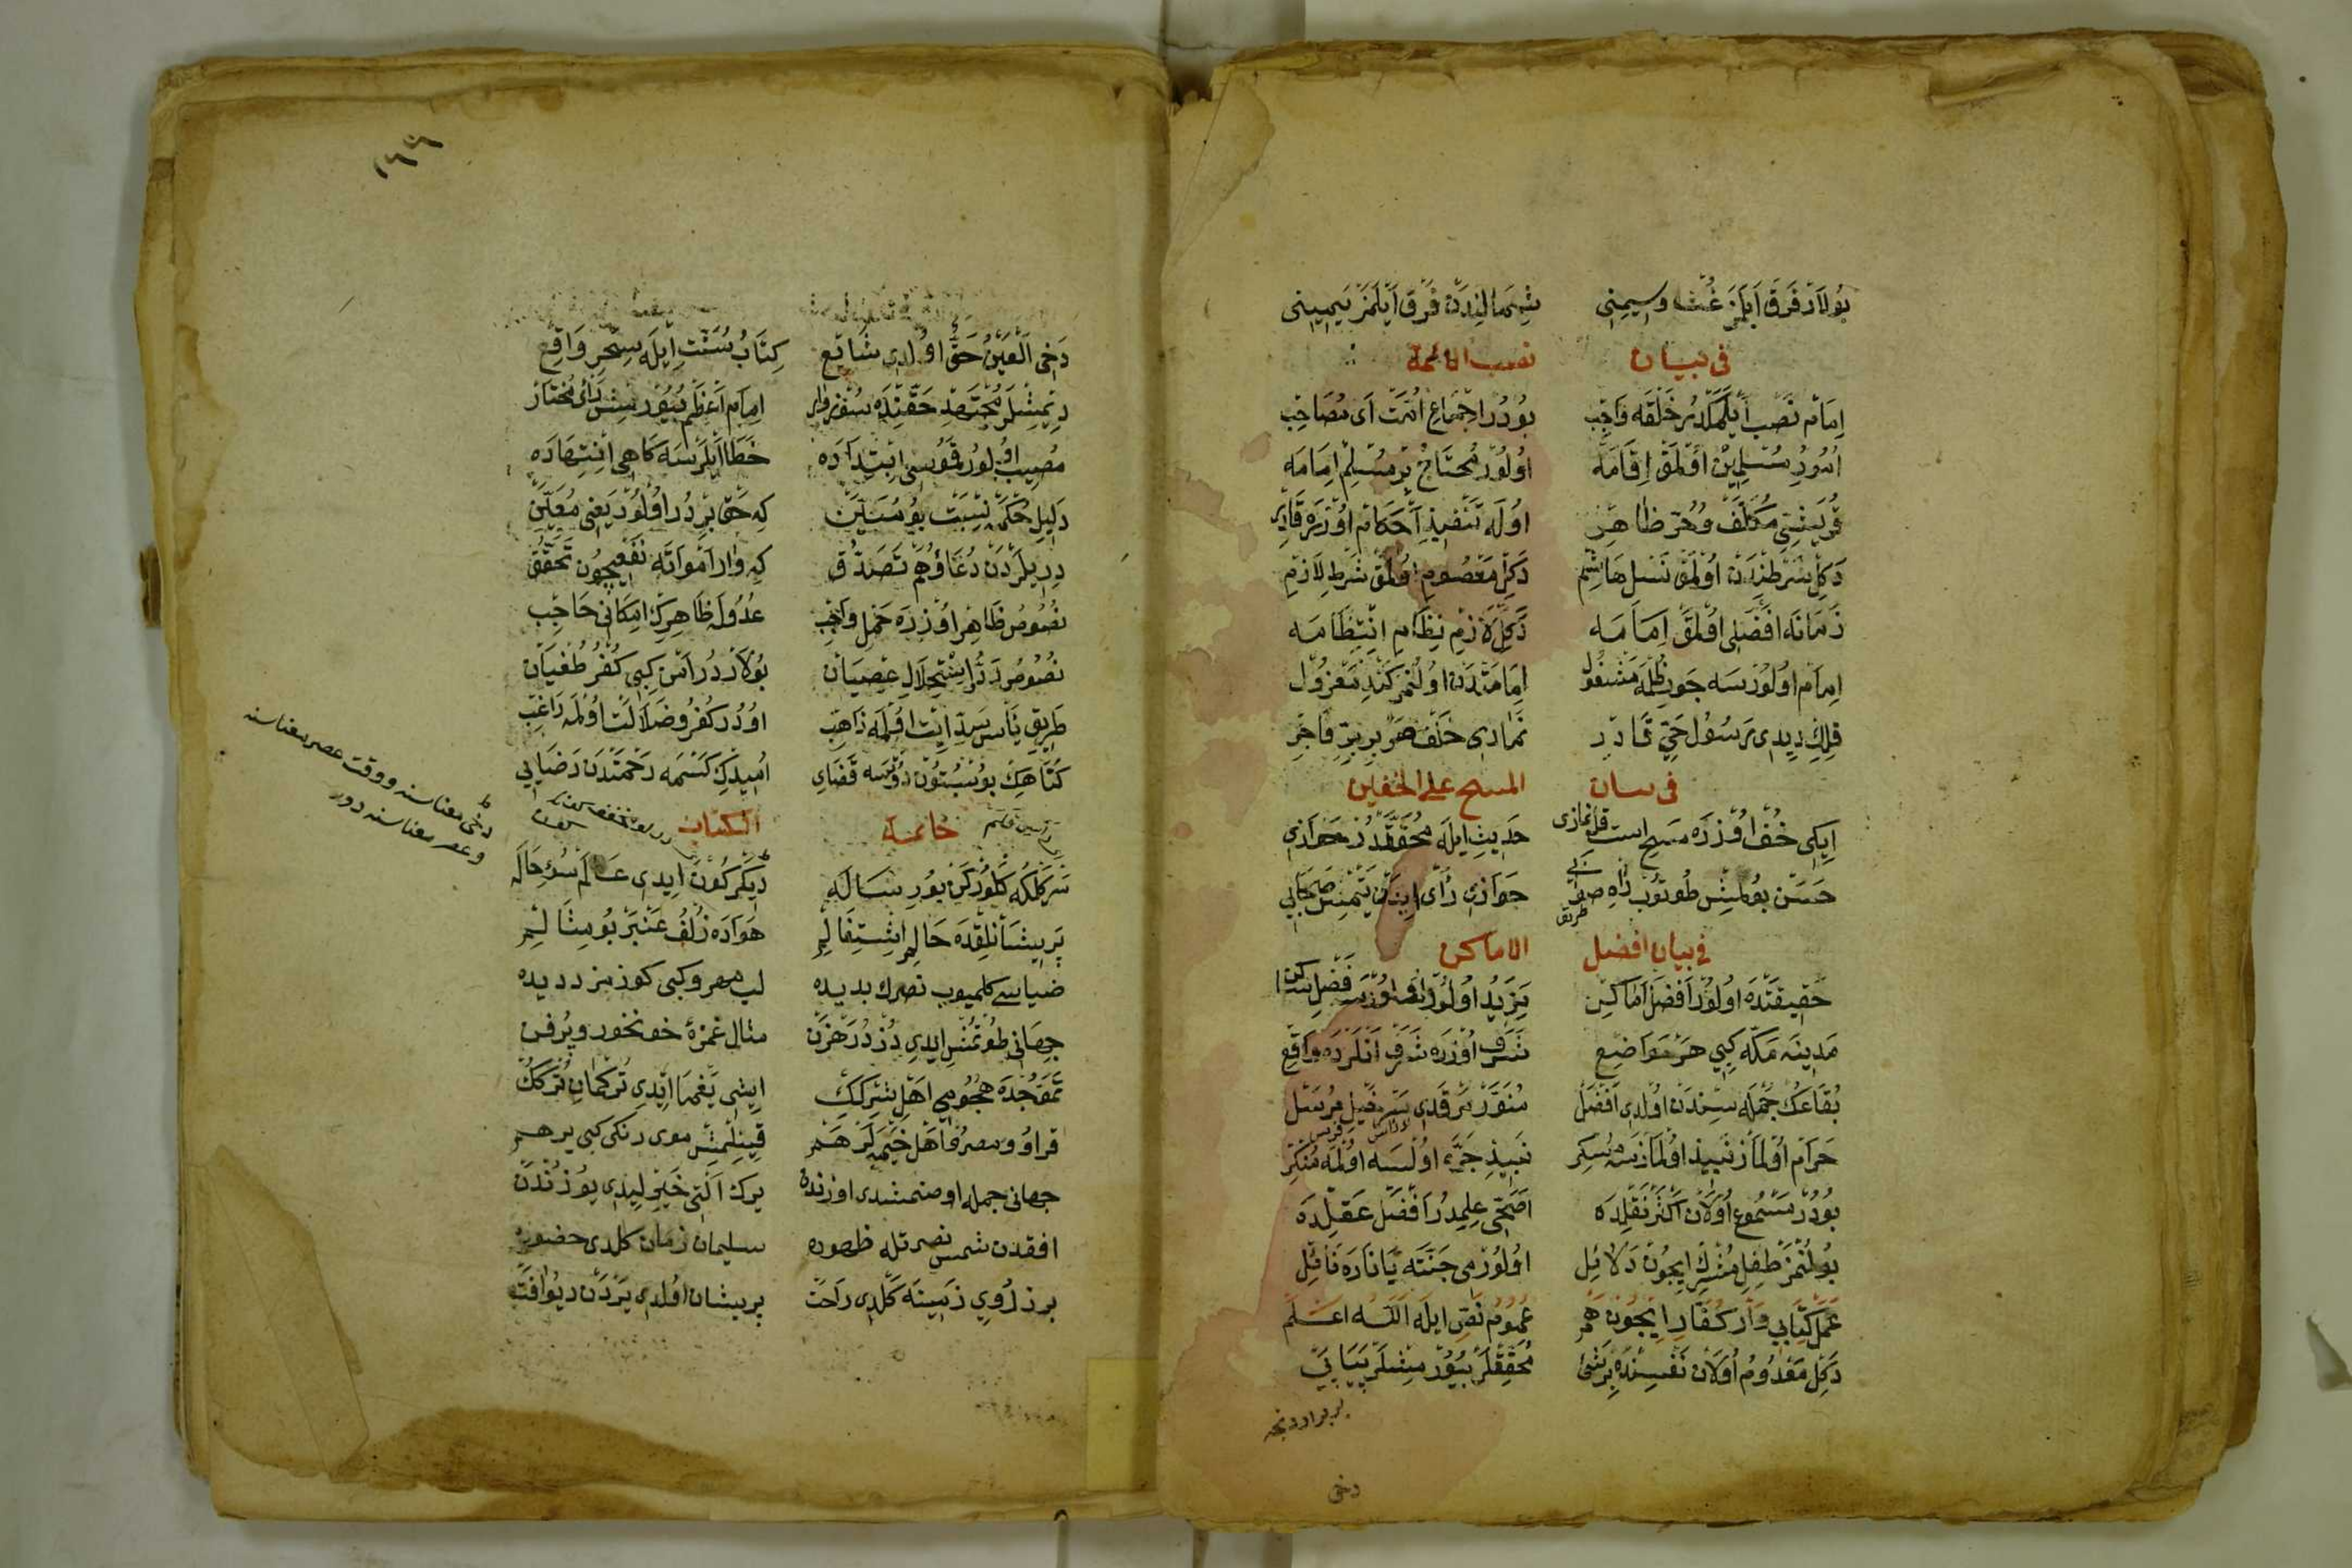 بولار فرق ایلمز غث وسمینی شمالندن فرق ایلمز یمینی
فی بیان نصب الائمة
امام نصب ایلمکدر خلقه واجب بودر اجماع امت ای مصاحب
امور مسلمین اولمق اقامه اولور محتاج بر مسلم امامه
قریشی مکلف وحر ظاهر اوله تنفیذ احکام اوزره قادر
دکل شرطندن اولمق نسل هاشم دکل معصوم اولمق شرط لازم
زمانه افضلی اولمق امامه دکل لازم نظام انتظامه
امام اولورسه جون ظلمه مشغول امامتدن اولنمز کندی معزول
قلك دیدی رسول حی قادر نمازی خلف هر بر بر فاجر
فی بیان المسح علی الخفین
ایکی خف اوزره مسح ایت قل نمازی حدیث ایله محققدر جوازی
حسن بولمش طوتوب راه صوابی جوازی رأی ایدن یتمش صحابی
طریق
فی بیان افضل الاماکن
حقیقتده اولور افضل اماکن یزید اولور اوزره فضل ساکن
مدینه مکه کبی هر مواضع شرف اوزره شرف انلرده واقع
بقاعك جمله سندن اولدی افضل منور مرقدی سرخیل مرسل
حرام اولماز نبیذ اولمازسه مسکر نبیذ جره اولسه اولمه منکر
بودر مسموع اولان اکثر نقلده اصحی علمدر افضل عقلده
بولنمز طفل مشرك ایچون دلائل اولور می جنته یا ناره نائل
عمل کتابی وار کفار ایچون هم عموم نص ایله الله اعلم
دکل معدوم اولان نفسنده بر شئ محققلر بیورمشلر بیانی
دخی
١٦٦
دخی العین حق اولدی شائع کتاب سنت ایله سحر واقع
دیمشلر مجتهد حقنده سوزی وار امام اعظم بیورمش رأی مختار
مصیب اولور قوسی ابتداده خطا ایلرسه کاهی انتهاده
دلیل حکمه نسبت بو مبین که حق بردر اولور یعنی معین
دریلردن دعا وهم تصدق که وار امواته نفعیچون تحقق
نصوص ظاهر اوزره حمل واجب عدوله ظاهرك امکانی حاجب
نصوص رددر استحلال عصیان بولاردر امن کبی کفر طغیان
طریق یأس سد ایت اولمه ذاهب اودر کفر وضلالت اولمه راغب
کناهك بوسبتون دوتسه فضایی امیدك کسمه رحمتدن رضایی
خاتمة الکتاب
سر کلکه کلورکن بو رساله دیکر کون ایدی عالم سوء حاله
پریشانلقده حالم اشتغالم هواده زلف عنبر بو مثالم
ضیاسی کلمیوب نصرك بدیده لب مهرو کبی کوزمز ددیده
جهانی طوتمش ایدی دزد رهزن مثال غمزۀ خونخور وپرفن
تموجده هجومی اهل شرکك ایشی یغما ایدی ترکمان ترکك
قراو ومصرف اهل خیمه لر هم قیینلمش موی زنکی کبی بر هم
جهانی جمله اوصنمشدی اوزندن یرك التی خیرلیدی یوزندن
افقدن شمس نصرتله ظهوره سلیمان زمان کلدی حضوره
بر زروی زمینه کلدی راحت پریشان اولدی یردن دیو افت
دخی معناسنه ووقت عصر معناسنه
وعصر معناسنه دور